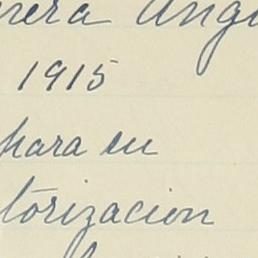 rera Ang
1915
para en
torizacion